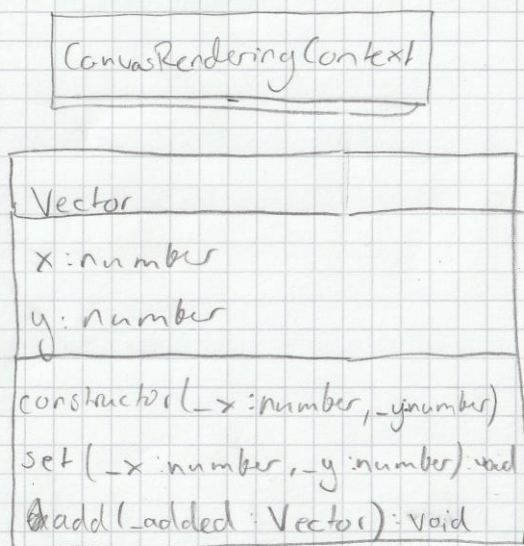 CanvasRenderingContext
Vector
x:number
y:number
constructor(_x:number,_y:number)
set(_x:number,_y:number):void
add(_added:Vector):void